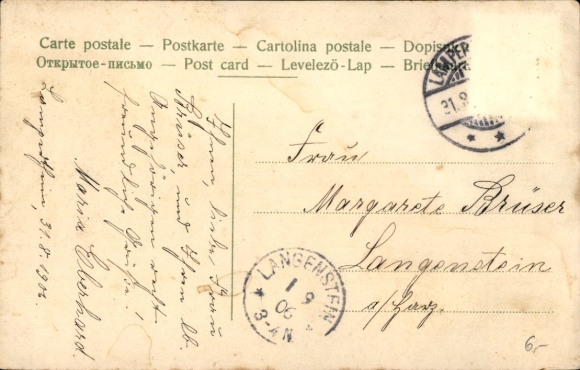 Carte postale — Postkarte — Cartolina postale — Dopis
Открытое-письмо — Post card — Levelező-Lap — Brief
LAMPER
31.8.
Frau
Margarete Brüser
Langenstein
a/Harz.
LANGENSTEIN
1 9
06
3-4N
Ihnen, liebe Frau
Brüser, und Ihren lb.
Angehörigen recht
freundliche Grüße!
Maria Eberhard.
31.8.190
6,-